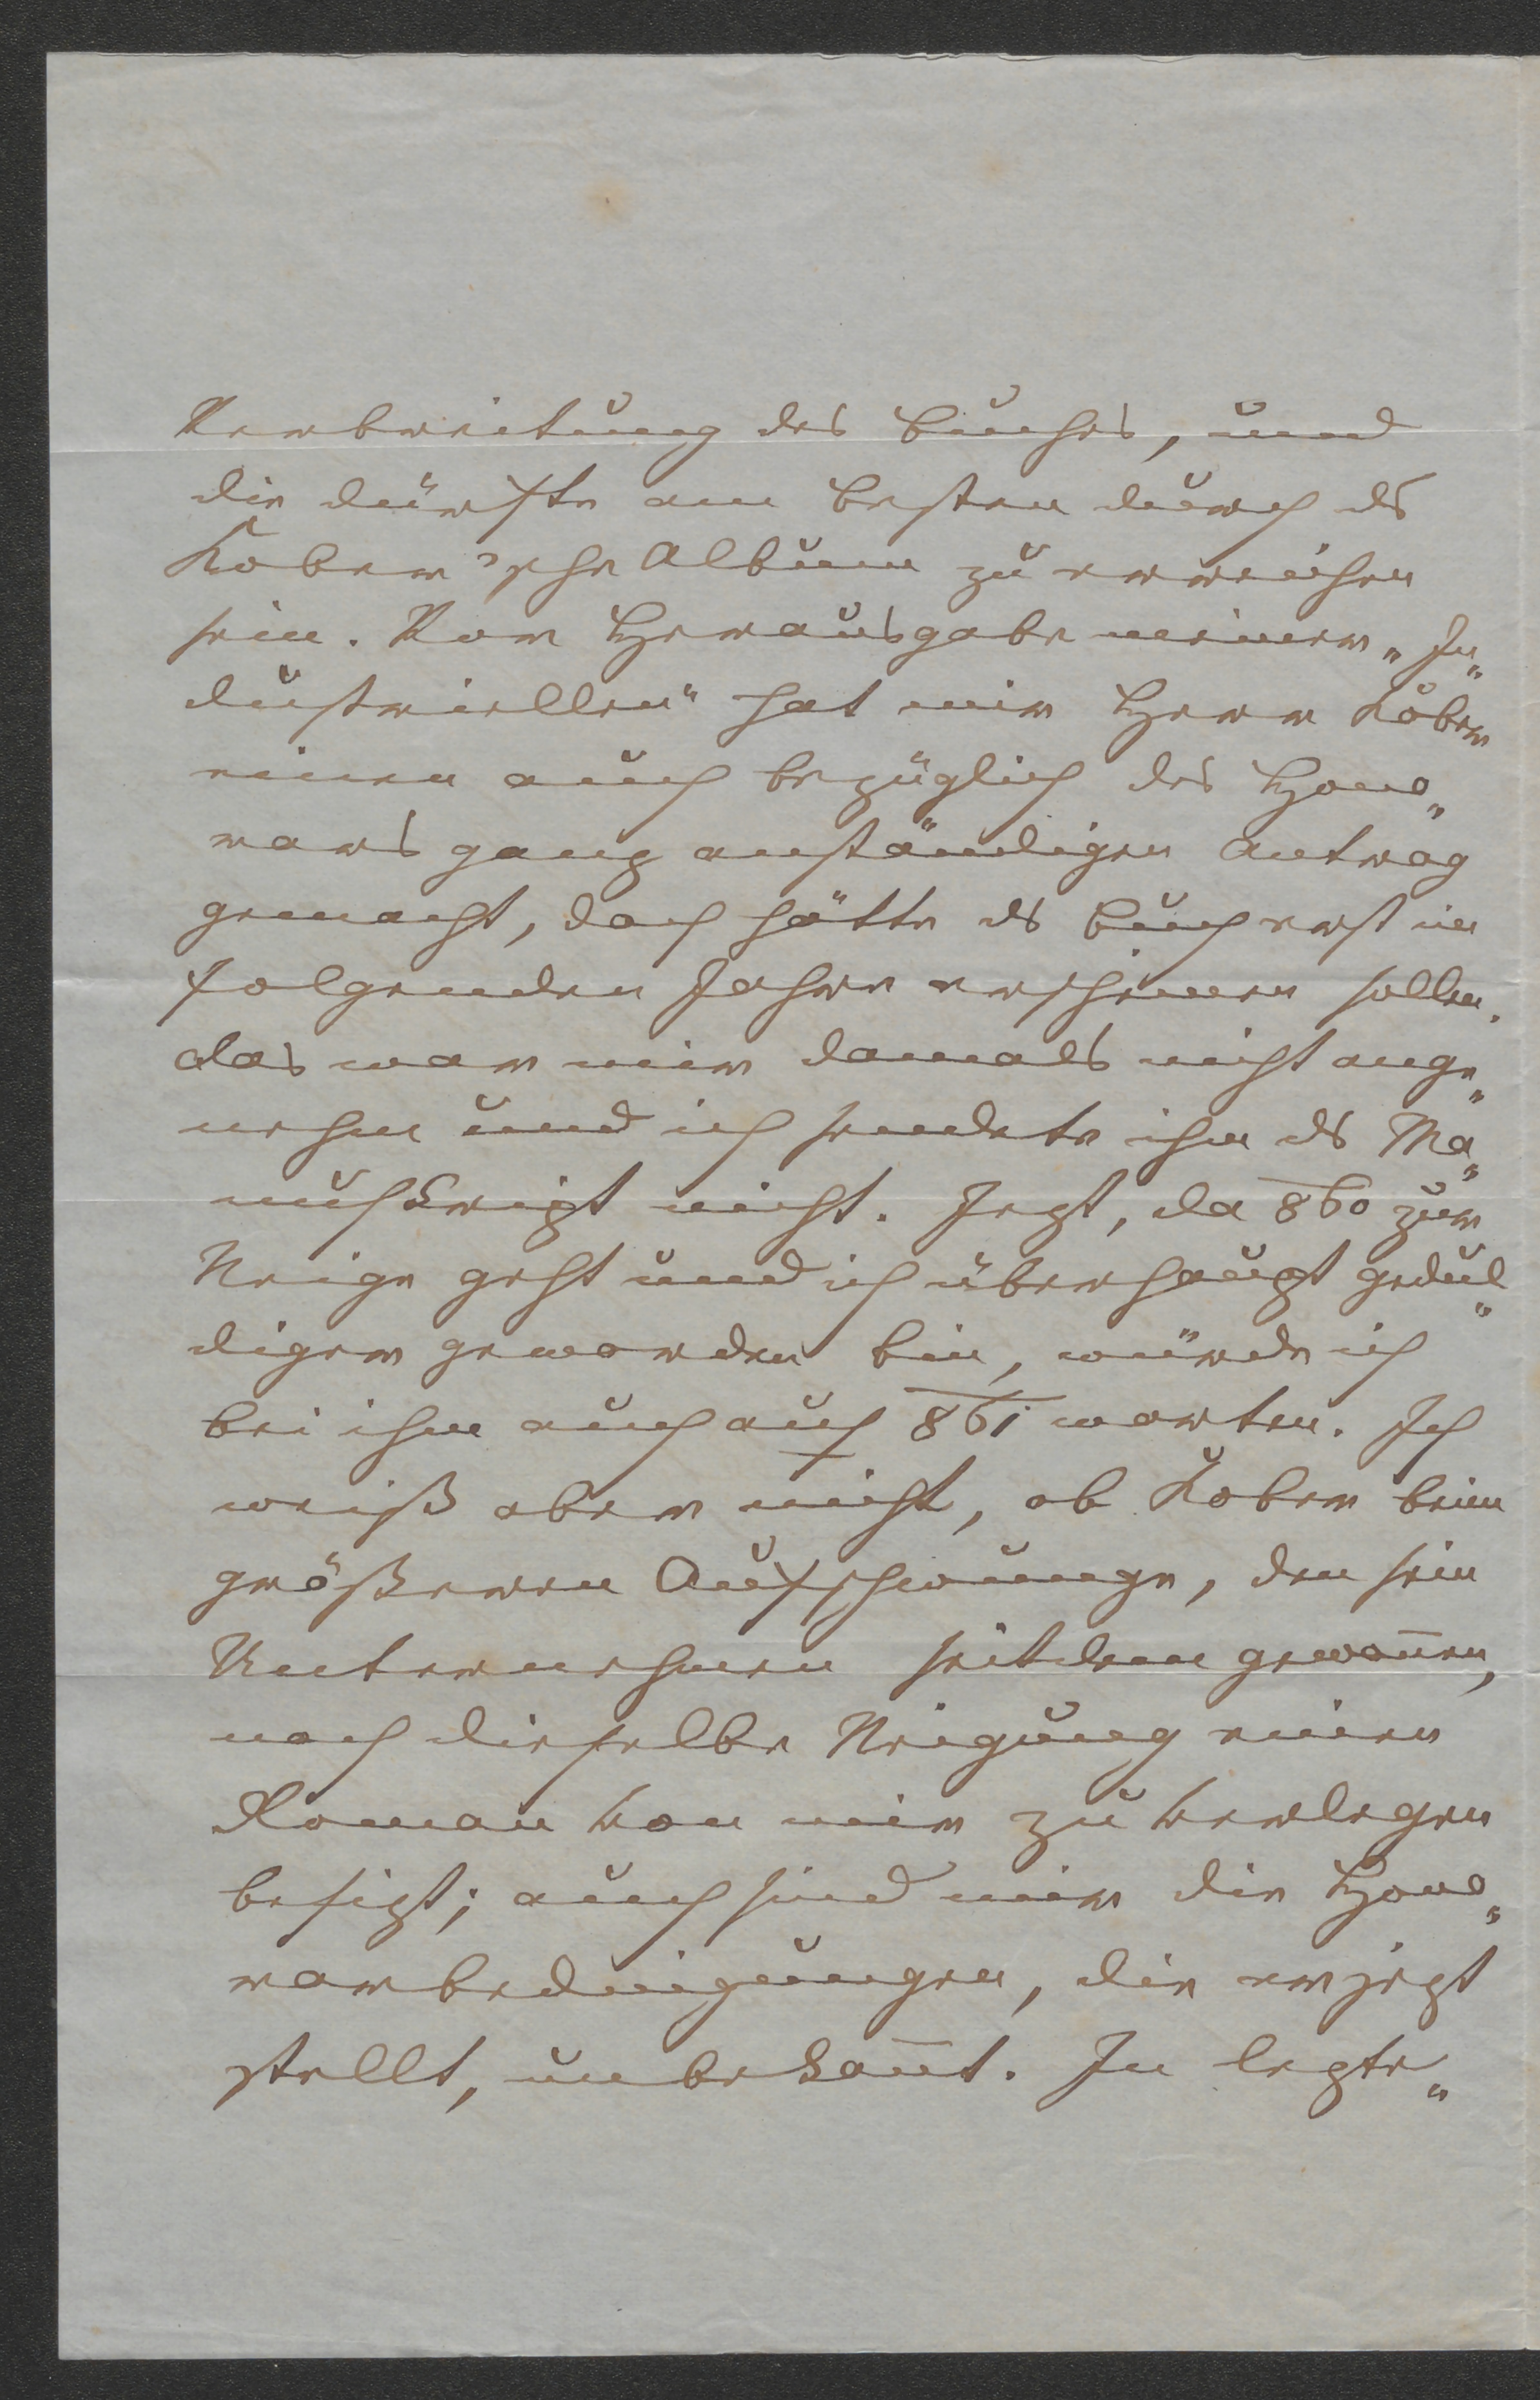 Verbreitung des Buches, und
die dürfte am besten durch ds
Kober'sche Album zu erreichen
sein. Vor Herausgabe meiner „In„
dustriellen" hat mir Herr Kober
einen auch bezüglich des Hono„
rars ganz anständigen Antrag
gemacht, doch hätte ds Buch erst im
folgenden Jahre erscheinen sollen.
das war mir damals nicht ange„
nehm und ich sendete ihm ds Ma„
nuskript nicht. Jezt, da 860 zur
Neige geht und ich überhaupt gedul„
diger geworden bin, würde ich
bei ihm auch auf 861 warten. Ich
weiß aber nicht, ob Kober beim
größeren Aufschwunge, den sein
Unternehmen seitdem gewoñen,
noch dieselbe Neigung einen
Roman von mir zu verlegen
besizt; auch sind mir die Hono„
rarbedingungen, die er jezt
stellt, unbekañt. In lezte„